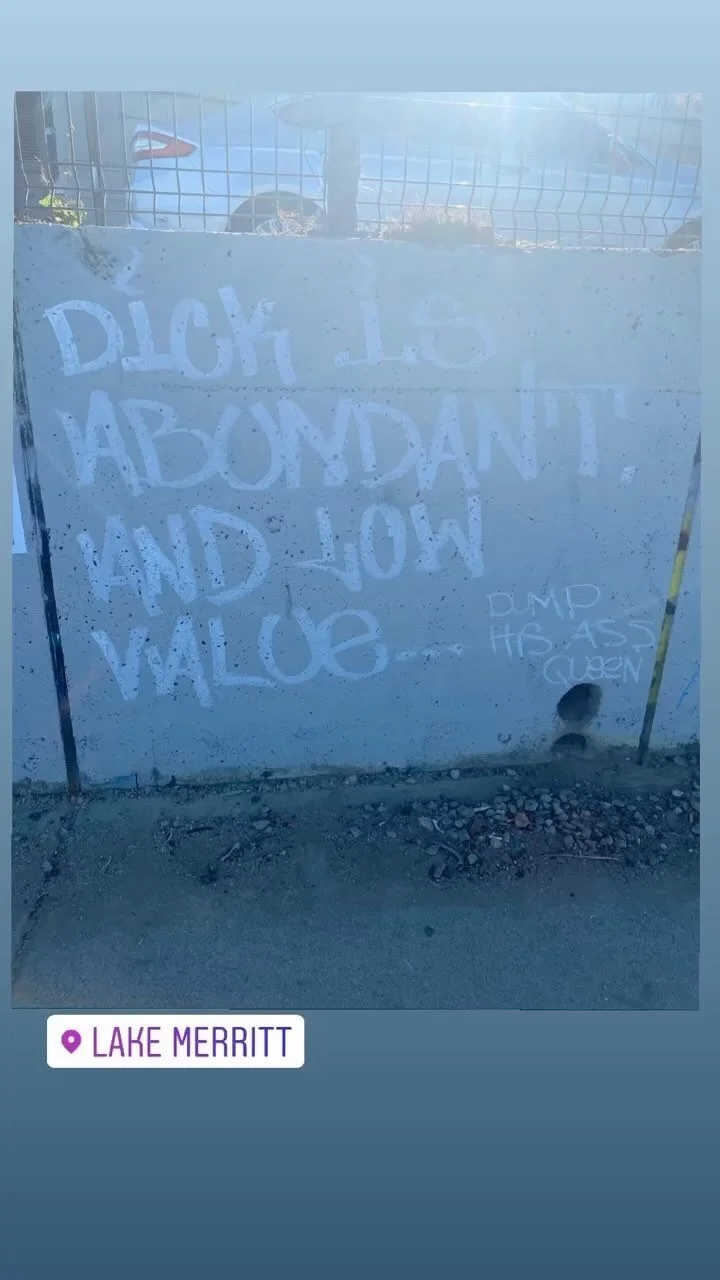 DiCK is
ABUNDANT,
AND LOW
VALUe---
DUMP
HIS ASS
QUeeN
LAKE MERRITT